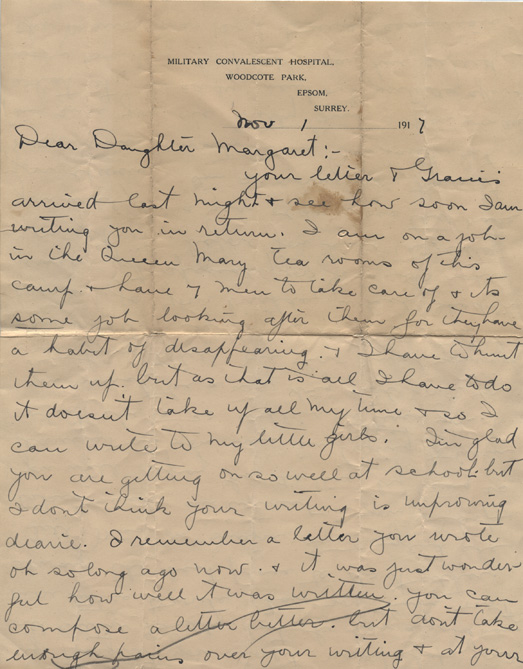 MILITARY CONVALESCENT HOSPITAL,
WOODCOTE PARK,
EPSOM,
SURREY.
Nov 1 1917
Dear Daughter Margaret:-
Your letter & Gracie's
arrived last night & see how soon I am
writing you in return. I am on a job
in the Queen Mary Tea rooms of this
camp. & have 7 men to take care of & its
some job looking after them for they have
a habit of disappearing. & I have to hunt
them up. but as that is all I have to do
it doesn't take up all my time & so I
can write to my little girls. I'm glad
you are getting on so well at school but
I don't think your writing is improving
dearie. I remember a letter you wrote
oh so long ago now. & it was just wonder-
ful how well it was written. you can
compose a letter better. but don't take
enough pains over your writing & at your